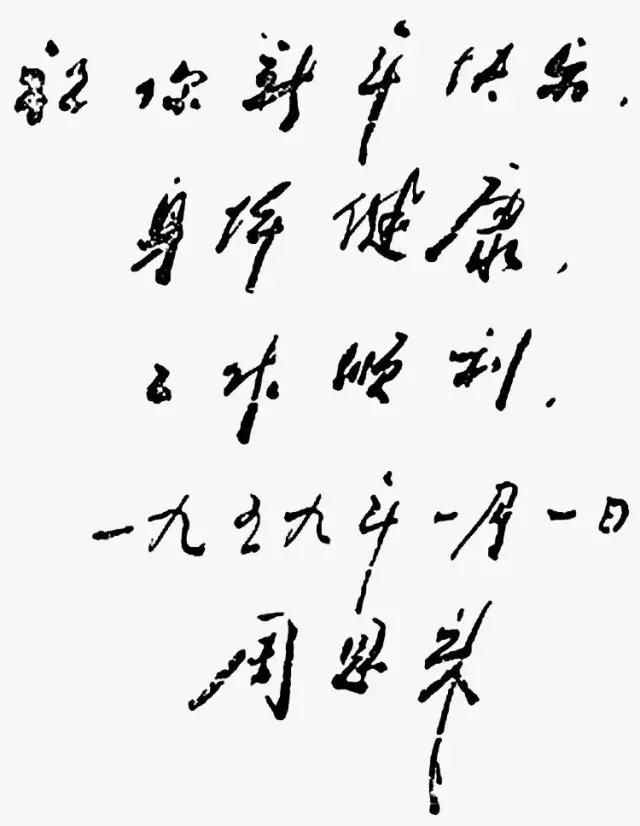 祝你新年快乐，
身体健康，
工作顺利．
一九五九年一月一日
周恩来